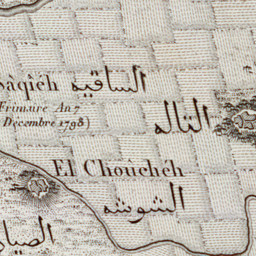 Sâqîéh الساقيه
Frimaire An 7
Décembre 1798)
التاله
El Choûchéh
الشوشه